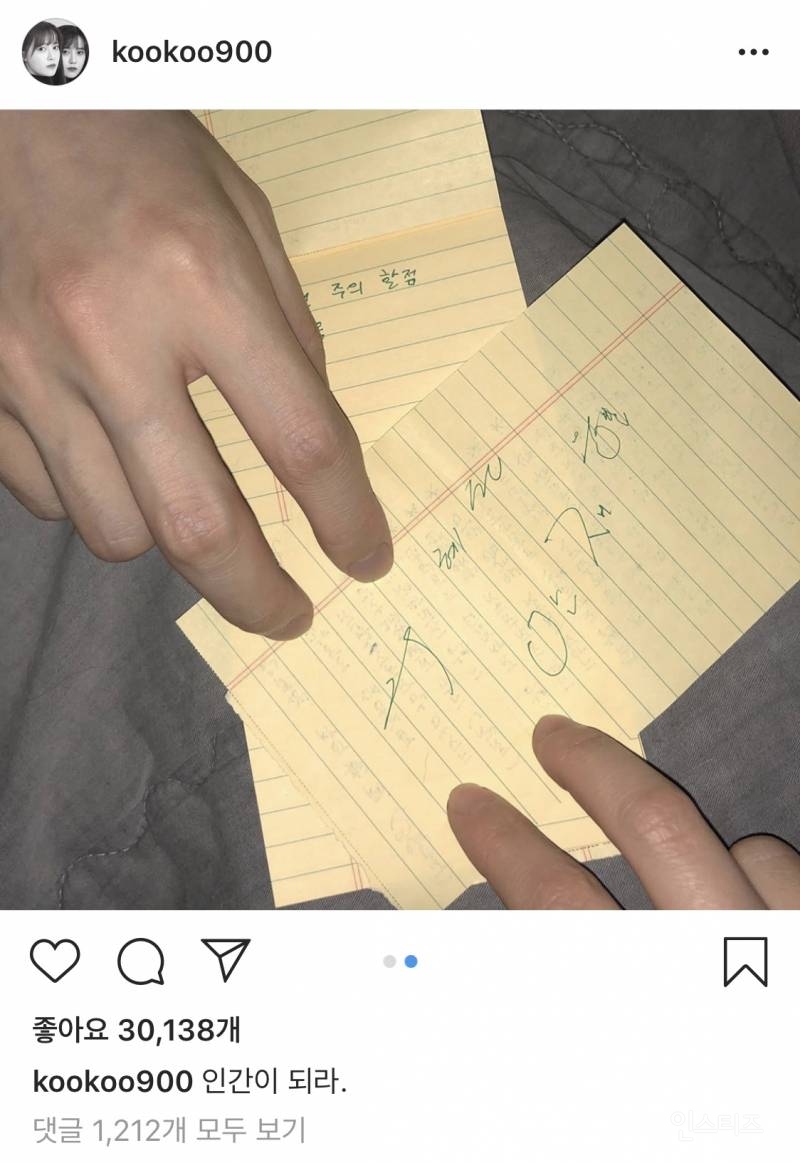 kookoo900
주의 할점
구 혜 선
안 재 현
좋아요 30,138개
kookoo900 인간이 되라.
댓글 1,212개 모두 보기
인스티즈